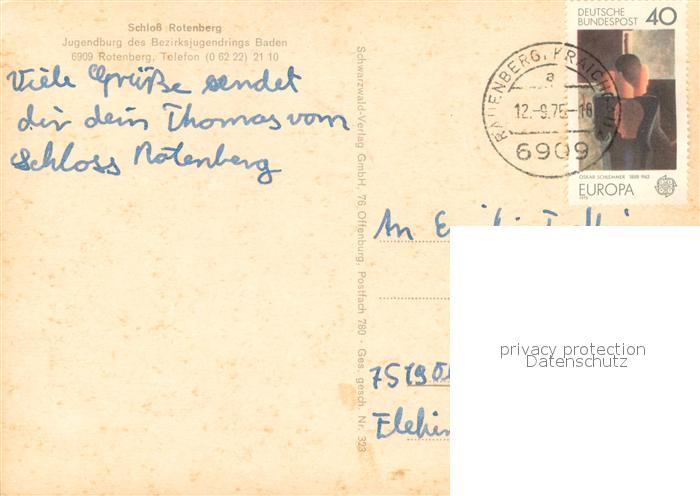 Schloß Rotenberg
Jugendburg des Bezirksjugendrings Baden
6909 Rotenberg, Telefon (0 62 22) 21 10
Viele Grüße sendet
dir dein Thomas vom
Schloss Rotenberg
Schwarzwald-Verlag GmbH, 76 Offenburg, Postfach 780 · Ges. gesch. Nr. 323
DEUTSCHE
BUNDESPOST 40
OSKAR SCHLEMMER 1888-1943
EUROPA
1975
RAUENBERG, KRAICHGAU
a
12.-9.75-18
6909
An
7519
privacy protection
Datenschutz